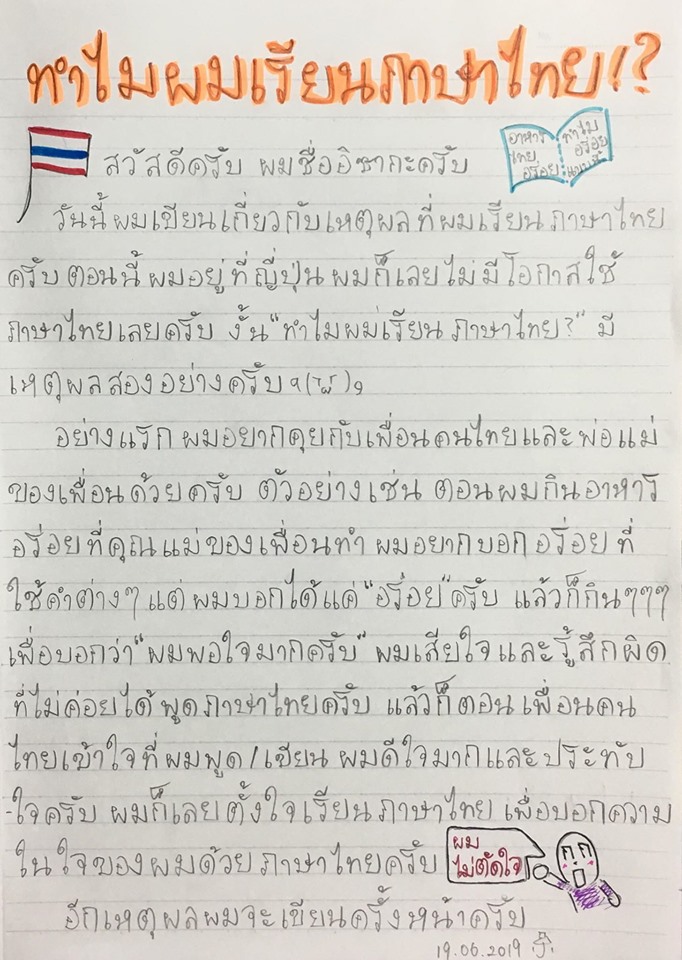 ทำไมผมเรียนภาษาไทย!?
อาหาร
ไทย
อร่อย
ทำไม
อร่อย
สวัสดีครับ ผมชื่ออิซากะครับ
วันนี้ผมเขียนเกี่ยวกับเหตุผลที่ผมเรียนภาษาไทย
ครับ ตอนนี้ผมอยู่ที่ญี่ปุ่น ผมก็เลยไม่มีโอกาสใช้
ภาษาไทยเลยครับ งั้น"ทำไมผมเรียนภาษาไทย?" มี
เหตุผลสองอย่างครับ
อย่างแรก ผมอยากคุยกับเพื่อนคนไทยและพ่อแม่
ของเพื่อนด้วยครับ ตัวอย่างเช่น ตอนผมกินอาหาร
อร่อยที่คุณแม่ของเพื่อนทำ ผมอยากบอกอร่อยที่
ใช้คำต่างๆ แต่ผมบอกได้แค่"อร่อย"ครับ แล้วก็กินๆๆๆ
เพื่อบอกว่า"ผมพอใจมากครับ" ผมเสียใจและรู้สึกผิด
ที่ไม่ค่อยได้พูดภาษาไทยครับ แล้วก็ตอนเพื่อนคน
ไทยเข้าใจที่ผมพูด/เขียน ผมดีใจมากและประทับ
-ใจครับ ผมก็เลยตั้งใจเรียนภาษาไทย เพื่อบอกความ
ในใจของผมด้วยภาษาไทยครับ
ผม
ไม่ตัดใจ
อีกเหตุผลผมจะเขียนครั้งหน้าครับ
19.06.2019